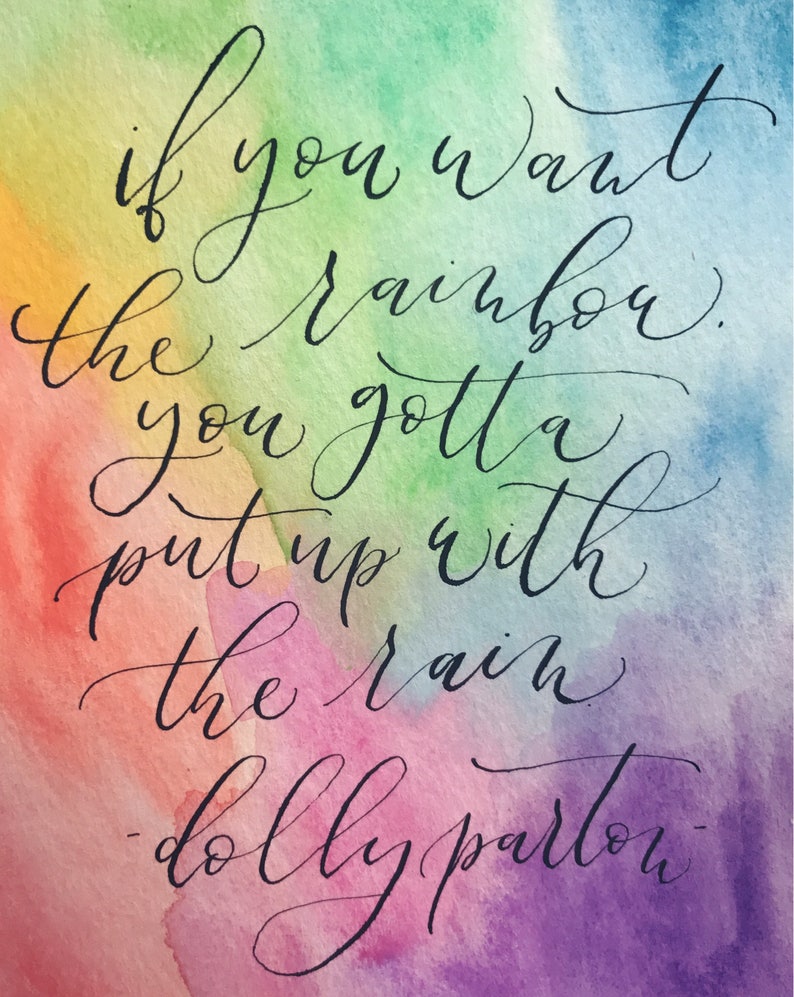 if you want
the rainbow.
you gotta
put up with
the rain.
-dolly parton-